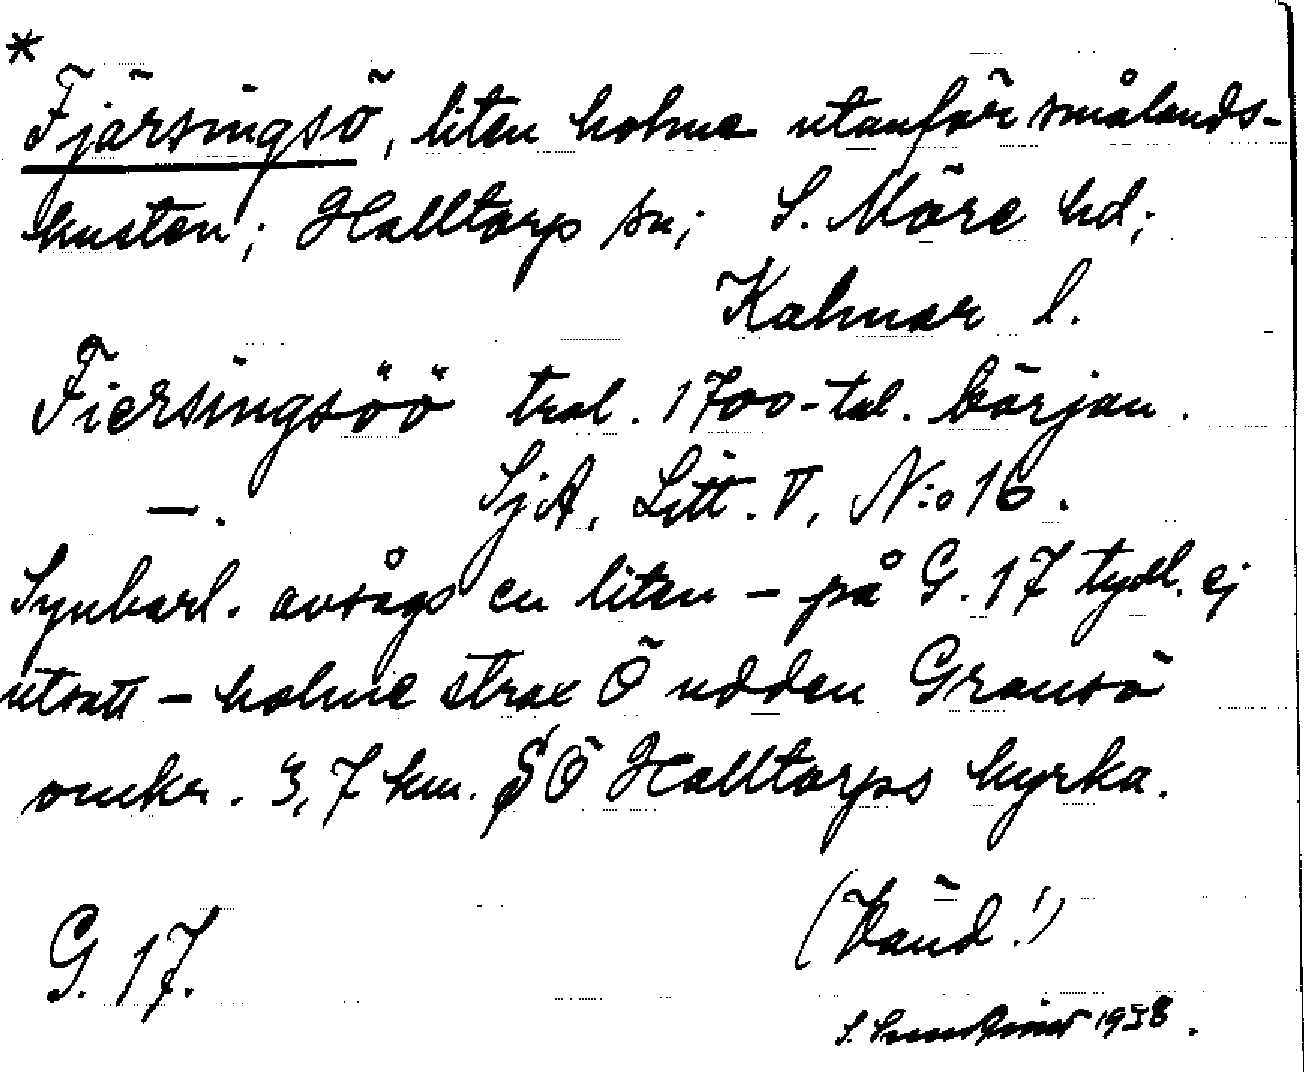 *
Fjärsingsö, liten holme utanför smålands-
kusten; Halltorp sn; S. Möre hd;
Kalmar l.
Fiersingsöö trol. 1700-tal. början.
—. SjA, Litt. V, N:o 16.
Synbarl. avsågs en liten – på G. 17 tydl. ej
utsatt – holme strax Ö udden Gransö
omkr. 3,7 km. SÖ Halltorps kyrka.
(Vänd!)
G. 17.
S. 1938.